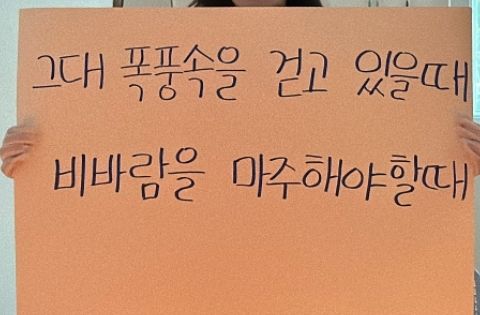 그대 폭풍속을 걷고 있을때
비바람을 마주해야할때